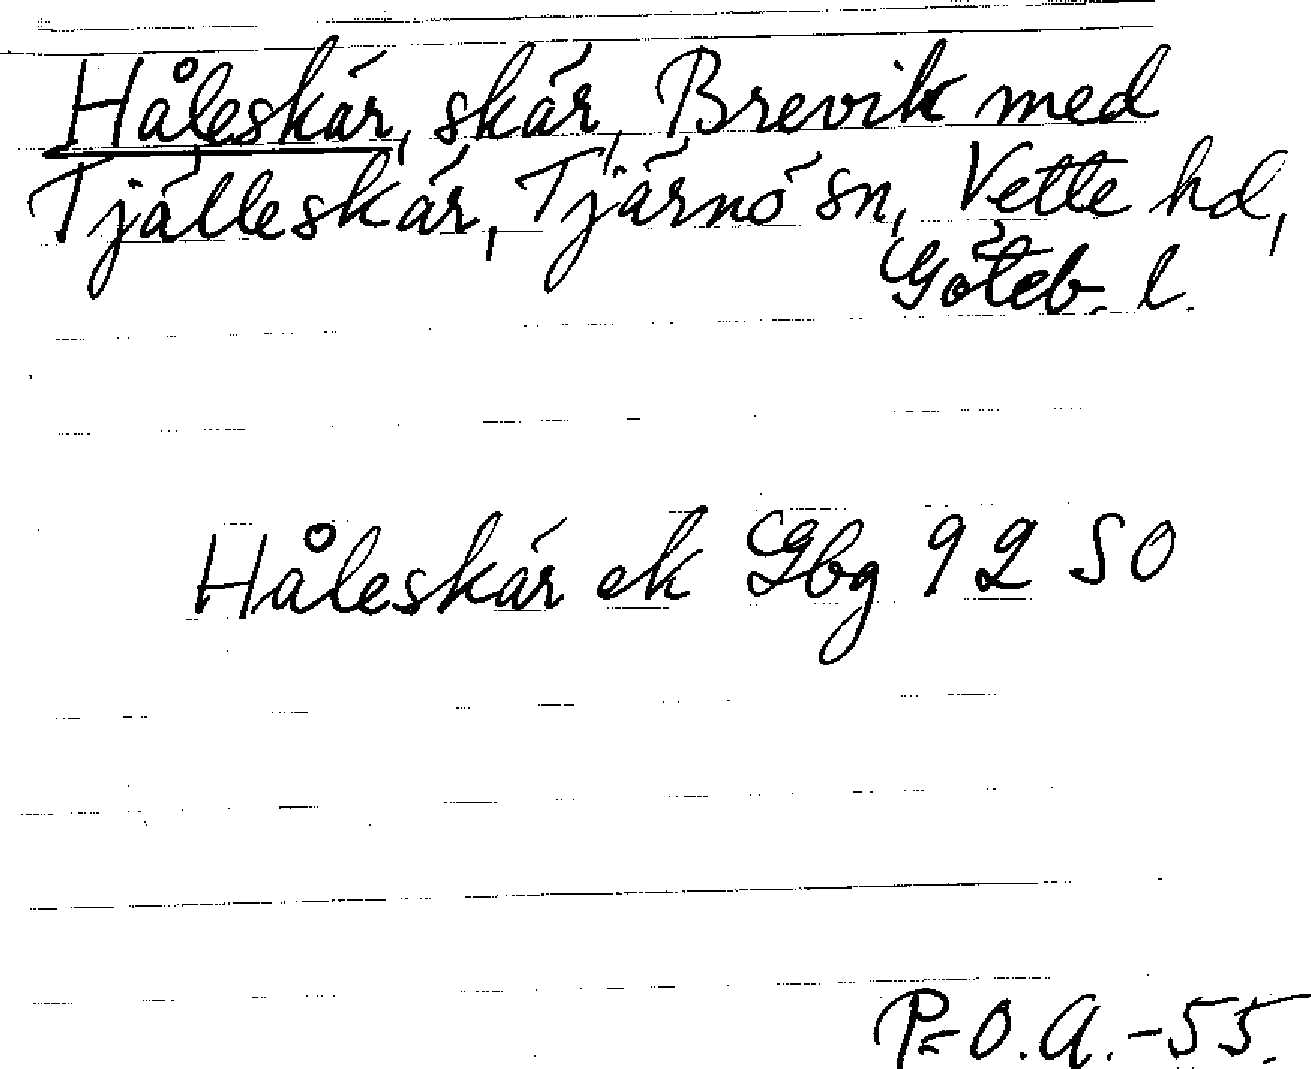 Håleskär, skär, Brevik med
Tjälleskär, Tjärnö sn, Vette hd,
Göteb. l.
Håleskär ek Gbg 92 SO
P=O.A.-55.